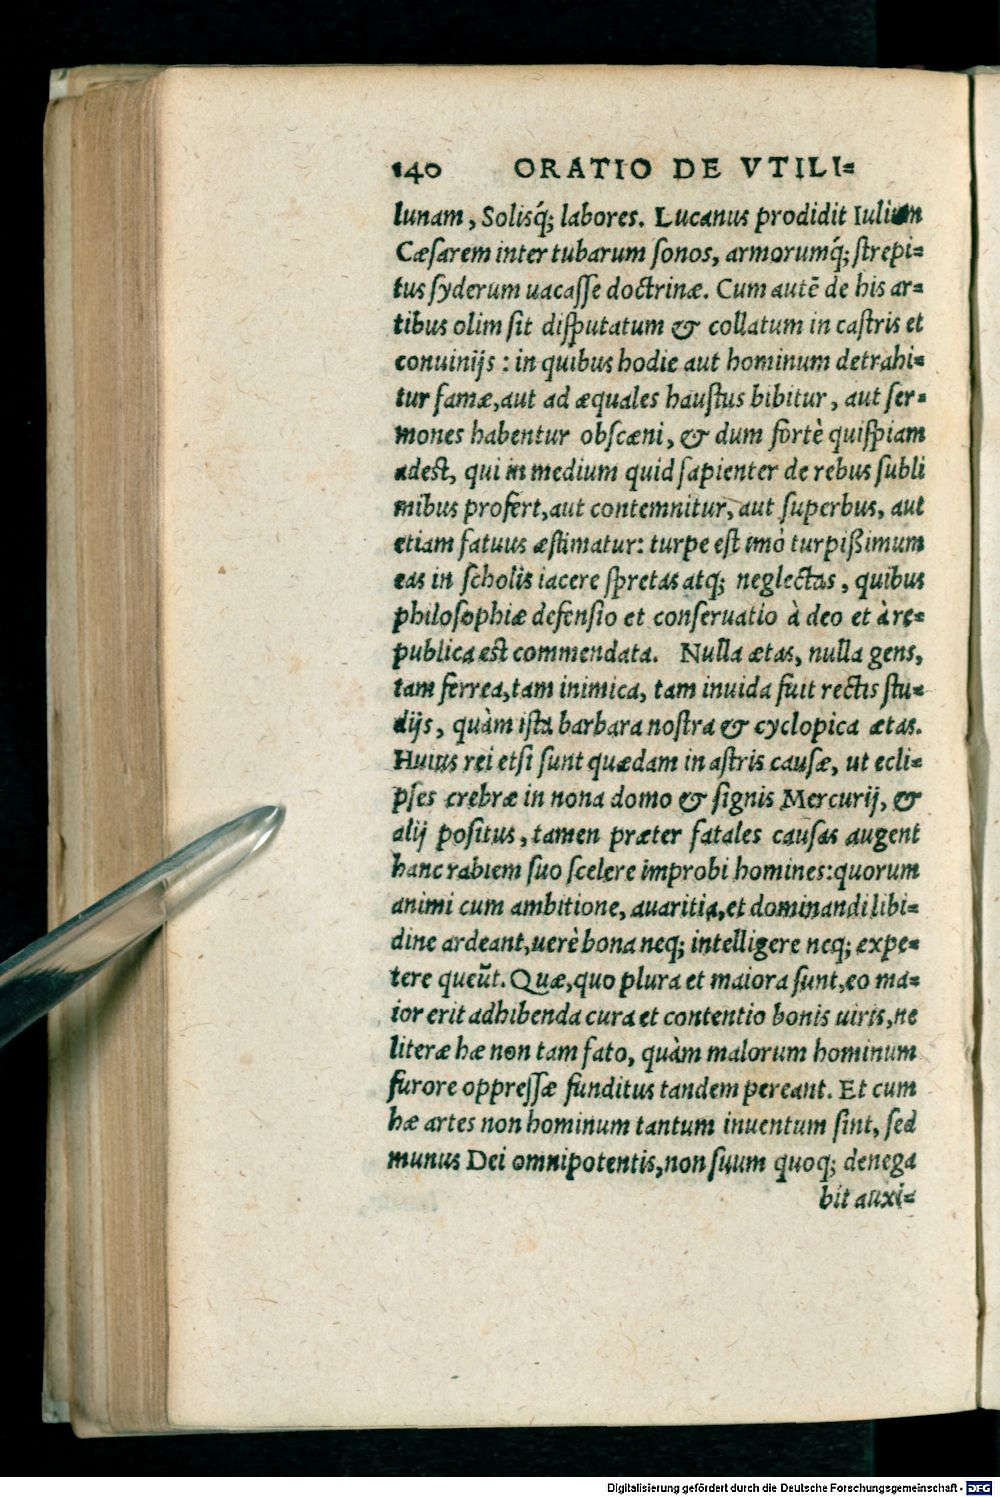 140 ORATIO DE VTILI=
lunam, Solisq́; labores. Lucanus prodidit Iulium
Cæsarem inter tubarum sonos, armorumq́; strepi=
tus syderum uacasse doctrinæ. Cum autē de his ar=
tibus olim sit disputatum & collatum in castris et
conuiuijs : in quibus hodie aut hominum detrahi=
tur famæ, aut ad æquales haustus bibitur, aut ser=
mones habentur obscæni, & dum fortè quispiam
adest, qui in medium quid sapienter de rebus subli
mibus profert, aut contemnitur, aut superbus, aut
etiam fatuus æstimatur: turpe est imò turpißimum
eas in scholis iacere spretas atq; neglectas, quibus
philosophiæ defensio et conseruatio à deo et à re=
publica est commendata. Nulla ætas, nulla gens,
tam ferrea, tam inimica, tam inuida fuit rectis stu=
dijs, quàm ista barbara nostra & cyclopica ætas.
Huius rei etsi sunt quædam in astris causæ, ut ecli=
pses crebræ in nona domo & signis Mercurij, &
alij positus, tamen præter fatales causas augent
hanc rabiem suo scelere improbi homines: quorum
animi cum ambitione, auaritia, et dominandi libi=
dine ardeant, uerè bona neq; intelligere neq; expe=
tere queūt. Quæ, quo plura et maiora sunt, eo ma=
ior erit adhibenda cura et contentio bonis uiris, ne
literæ hæ non tam fato, quàm malorum hominum
furore oppressæ funditus tandem pereant. Et cum
hæ artes non hominum tantum inuentum sint, sed
munus Dei omnipotentis, non suum quoq; denega
bit auxi=
Digitalisierung gefördert durch die Deutsche Forschungsgemeinschaft - DFG